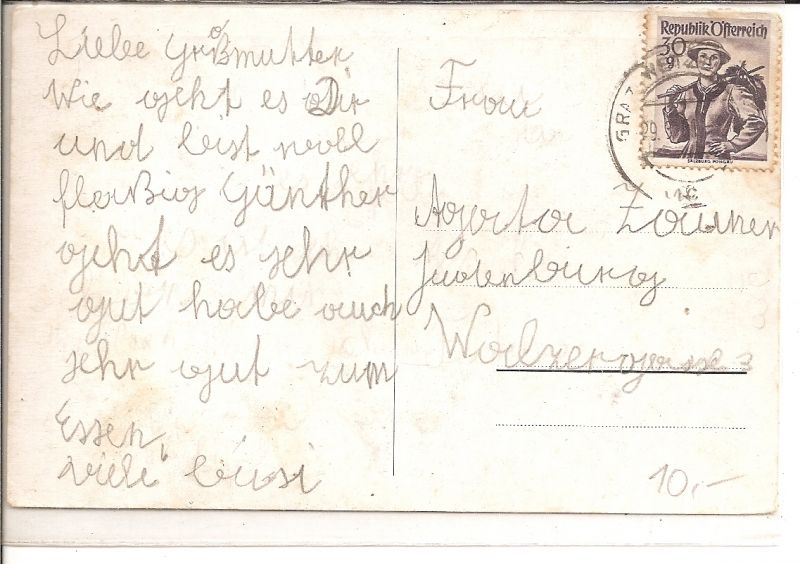 Liebe Großmutter
Wie geht es Dir
und bist woll
fleißig Günther
geht es sehr
gut habe auch
sehr gut zum
Essen,
viele busi
Frau
Agata Zauner
Judenburg
Walzergasse 3
10,-
Republik Österreich
30
g
SALZBURG PONGAU
GRAZ
29